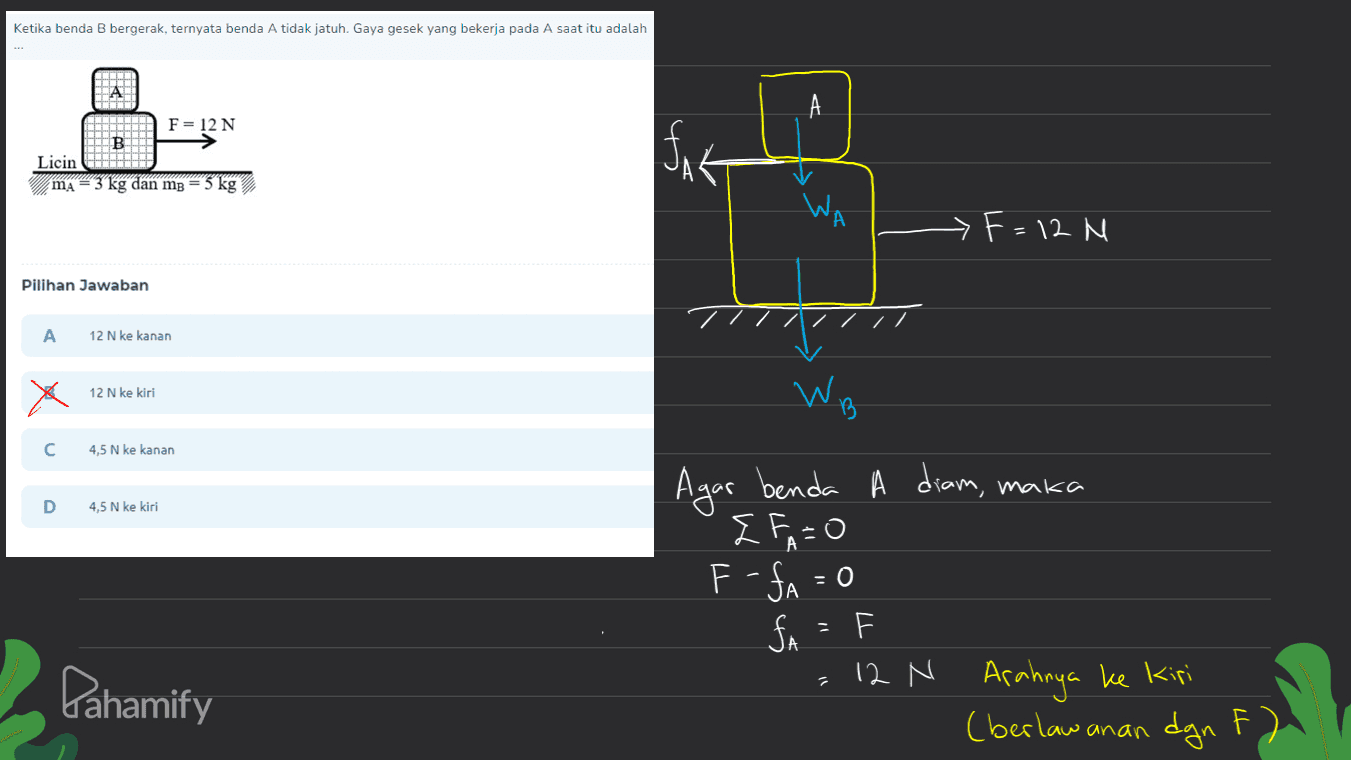 Ketika benda B bergerak, ternyata benda A tidak jatuh. Gaya gesek yang bekerja pada A saat itu adalah
...
A
F = 12 N
B
Licin
mA = 3 kg dan mB = 5 kg
Pilihan Jawaban
A 12 N ke kanan
B 12 N ke kiri
C 4,5 N ke kanan
D 4,5 N ke kiri
A
fA
WA
F = 12 N
WB
Agar benda A diam, maka
Σ FA = 0
F - fA = 0
fA = F
= 12 N Arahnya ke kiri
(berlawanan dgn F)
Pahamify